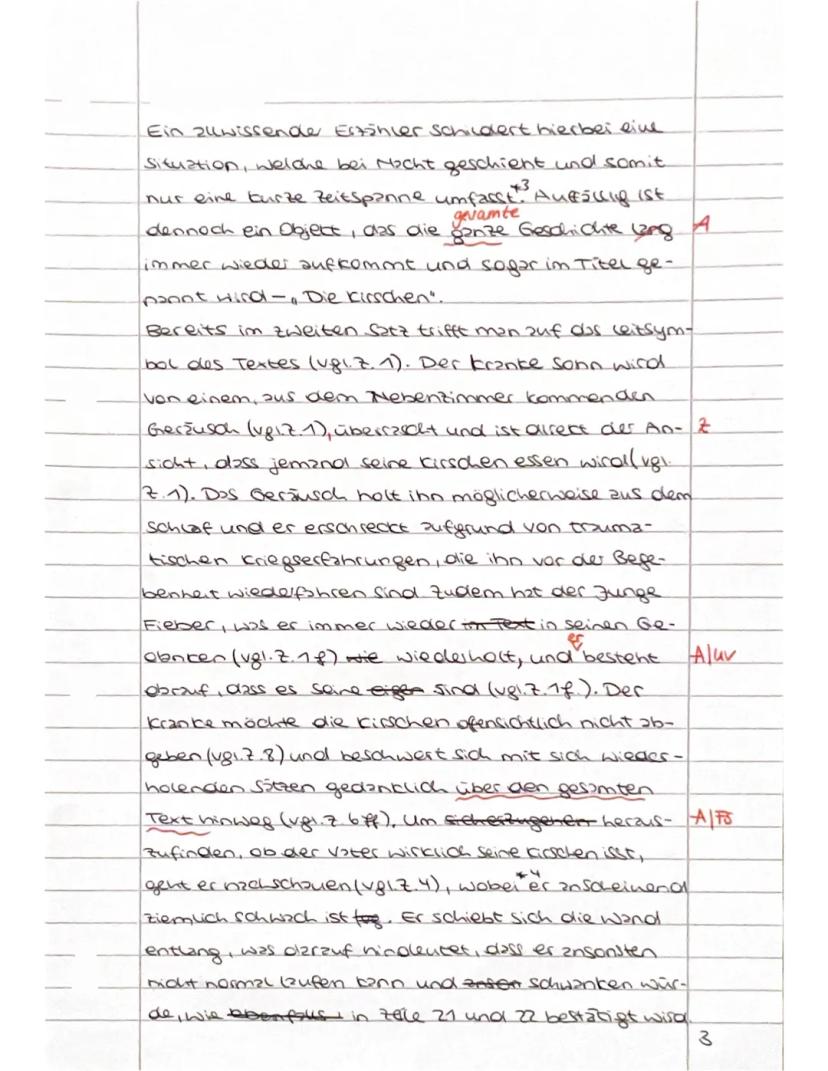 Ein allwissender Erzähler schildert hierbei eine
Situation, welche bei Nacht geschieht und somit
nur eine kurze Zeitspanne umfasst.*3 Auffällig ist
gesamte
dennoch ein Objekt, das die ganze Geschichte lang A
immer wieder aufkommt und sogar im Titel ge-
nannt wird – „Die Kirschen".
Bereits im zweiten Satz trifft man auf das Leitsym-
bol des Textes (vgl. Z. 1). Der kranke Sohn wird
von einem, aus dem Nebenzimmer kommenden
Geräusch (vgl. Z. 1), überrascht und ist direkt der An- Z
sicht, dass jemand seine Kirschen essen wird (vgl.
Z. 1). Das Geräusch holt ihn möglicherweise aus dem
Schlaf und er erschreckt aufgrund von trauma-
tischen Kriegserfahrungen, die ihn vor der Bege-
benheit wiederfahren sind. Zudem hat der Junge
Fieber, was er immer wieder im Text in seinen Ge-
er
danken (vgl. Z. 1f) wie wiederholt, und besteht A/uv
darauf, dass es seine eigen sind (vgl. Z. 1f.). Der
Kranke möchte die Kirschen ofensichtlich nicht ab-
geben (vgl. Z. 8) und beschwert sich mit sich wieder-
holenden Sätzen gedanklich über den gesamten
Text hinweg (vgl. Z 6ff). Um sicherzugehen heraus- A/FS
zufinden, ob der Vater wirklich seine Kirschen isst,
geht er nachschauen (vgl. Z. 4), wobei *4 er anscheinend
ziemlich schwach ist. Er schiebt sich die Wand
entlang, was darauf hindeutet, dass er ansonsten
nicht normal laufen kann und anson schwanken wür-
de, wie ebenfalls in Zeile 21 und 22 bestätigt wird.
3